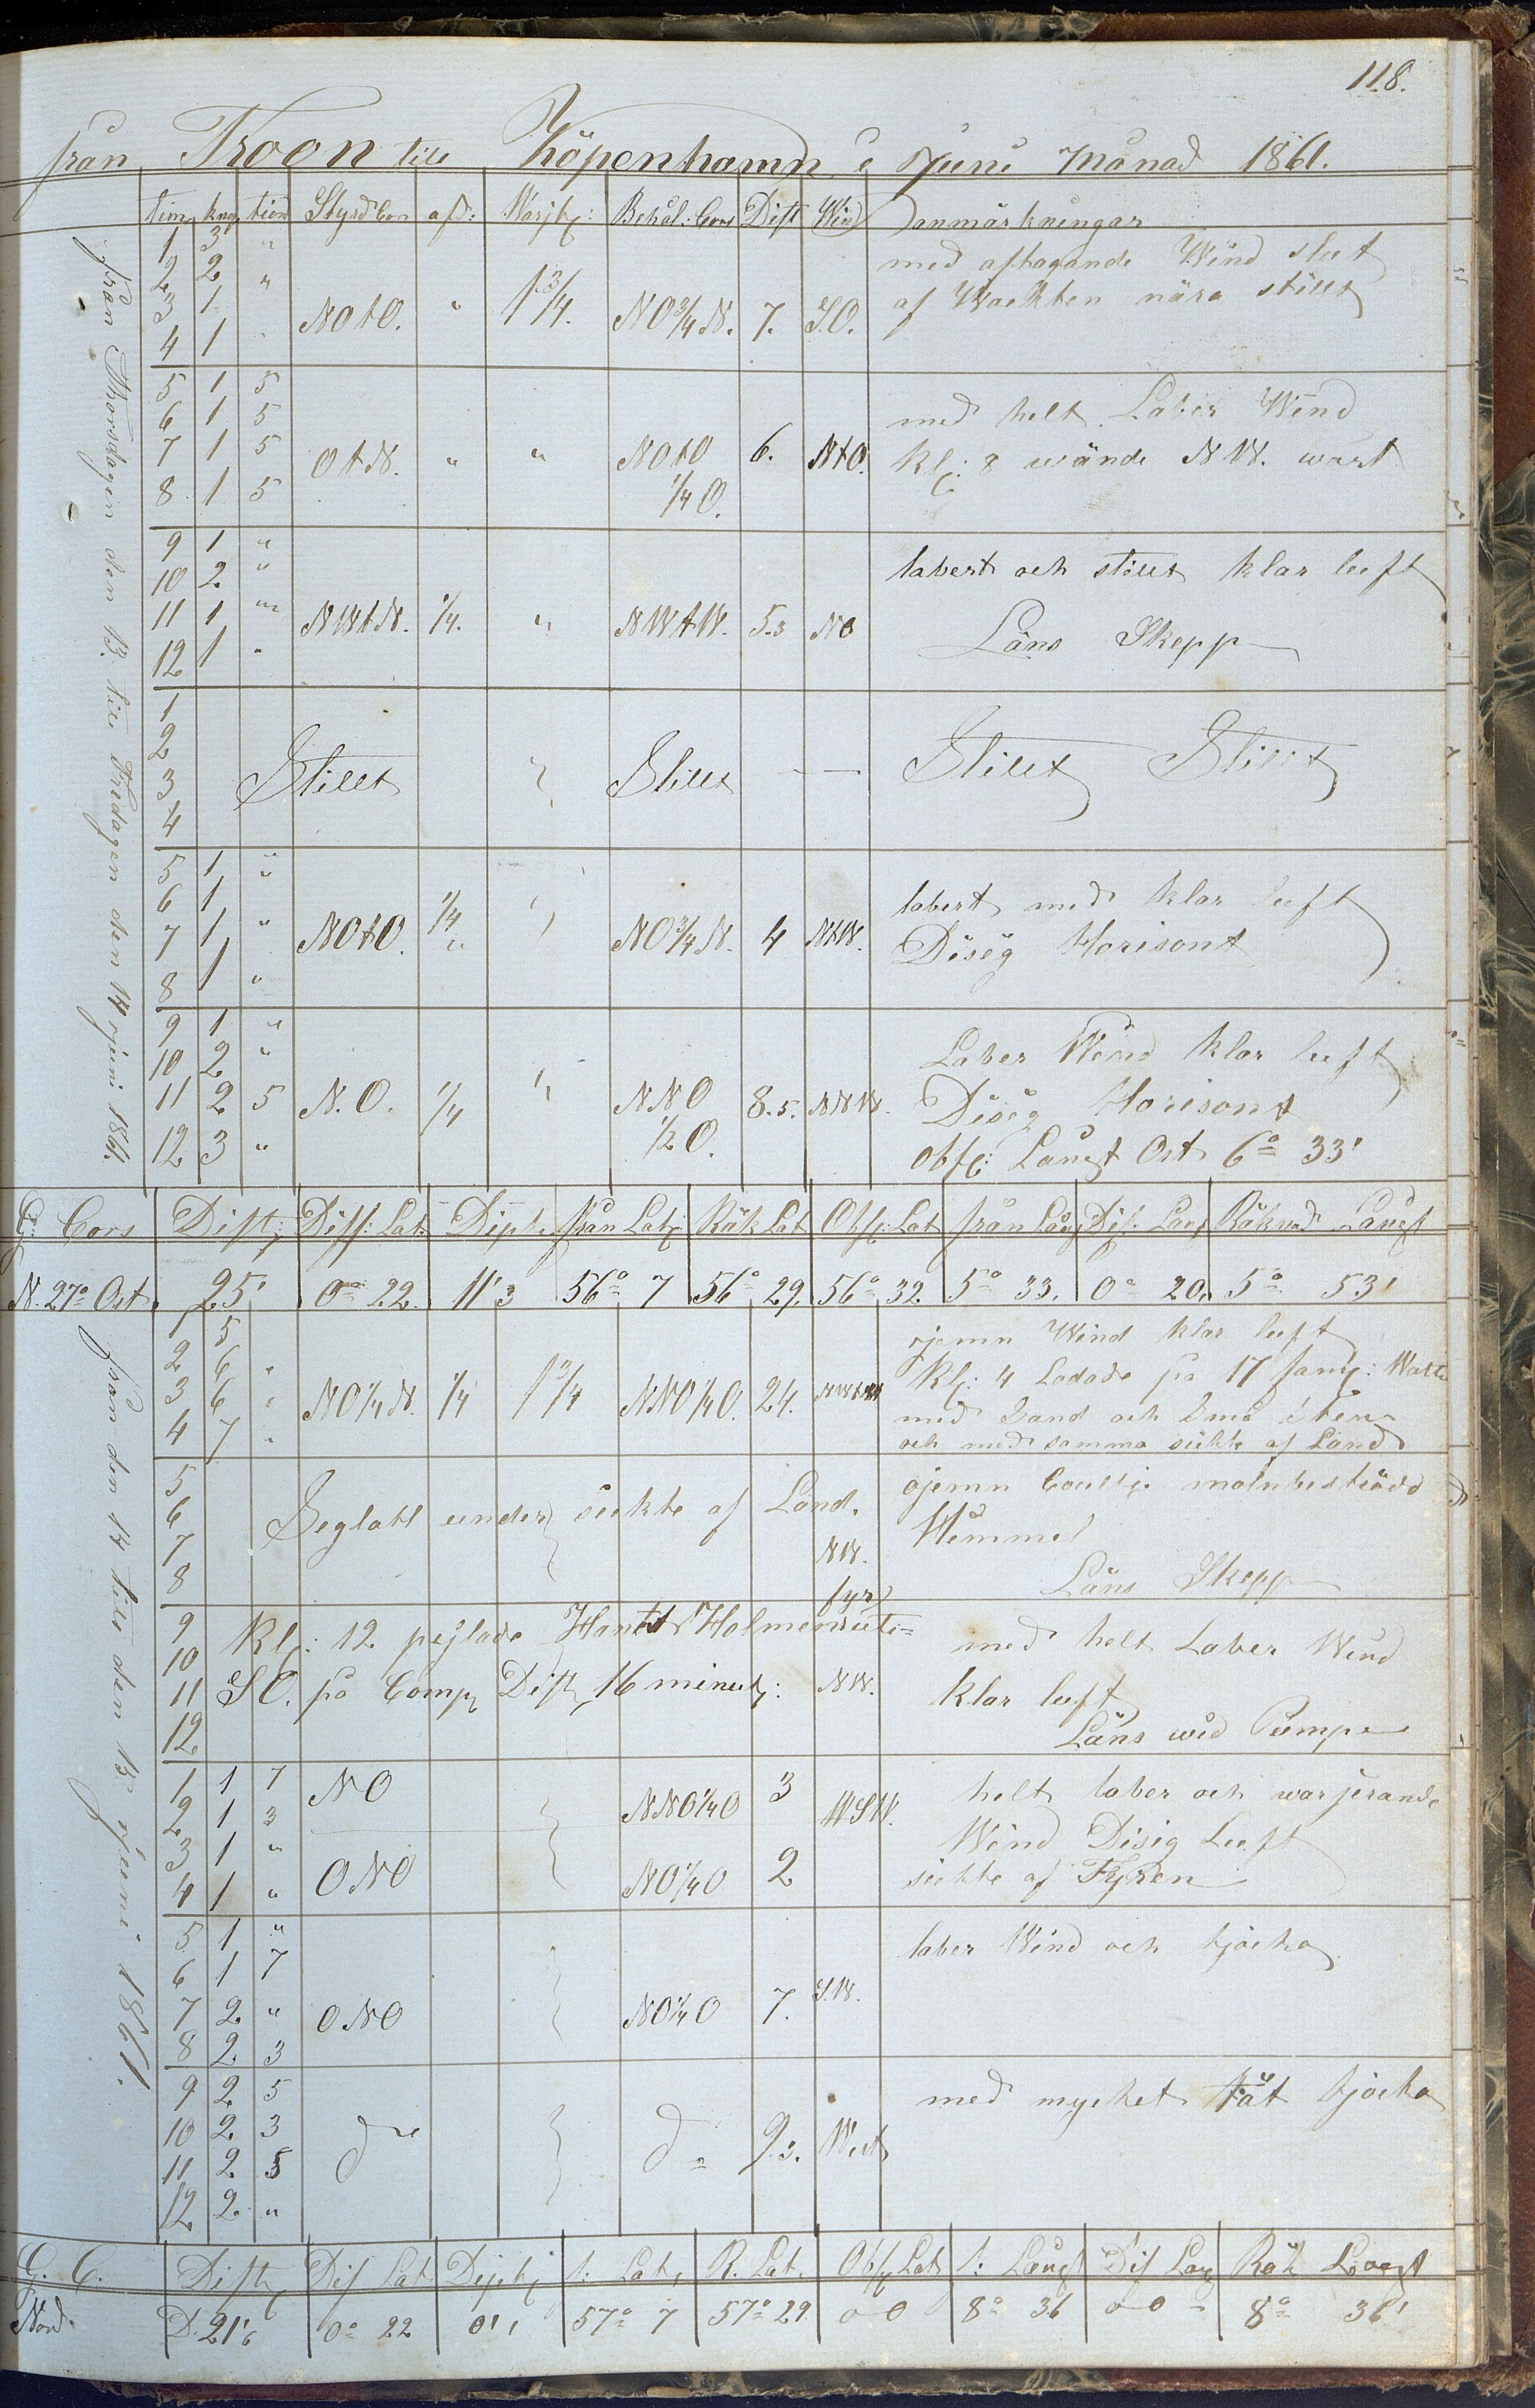 118.
från Troon till Köpenhamn i Juni Månad 1861.
Tim kno tion Styrd Cors afd: Warjtg: Behål: Cors Dist Wind anmärkningar
från Thorsdagen den 13. till Fredagen den 14 Juni 1861.
1 3 "
2 2 " med aftagande Wind slut
3 1 NOtO. " 1 3/4. NO 3/4 N. 7. S.O. af Wackten nära stillt
4 1
5 1 5
6 1 5 med helt Laber Wind
7 1 5 OtN. " " NOtO 6. NtO. Kl: 8 wände N W. wart
8 1 5 1/4 O.
9 1 "
10 2 " labert och stillt klar luft
11 1 NWtN. 1/4. " NWtW. 5.3 NO Läns Skepp
12 1 "
1
2
3 Stillt Stillt Stillt Stillt
4
5 1 "
6 1 labert med klar luft
7 1 " NOtO. 1/4 " NO 3/4 N. 4 NtW. Disig Horisont
8 1 "
9 1 "
10 2 " Laber Wind klar luft
11 2 5 N.O. 1/4 " NNO 8.5. NNW. Disig Horisont
12 3 " 1/2 O. Obs: Längt Ost 6° 33'
G: Cors Dist: Diff: Lat. från Lat: Räk Lat Obs: Lat från Läng Dif. Lang Räknad Längt
N. 27° Ost. 25' 0° 22. 11' 3 56° 7 56° 29. 56° 32. 5° 33. 0° 20. 5° 53'
från den 14 till den 15 Juni 1861.
1 5 ojemn Wind klar luft
2 6 " Kl: 4 Lodade på 17 famg: Watte
3 6 " NO 1/4 N. 1/4 1 3/4 NNO 1/4 O. 24. med Sand och små sten
4 7 " och med samma sickte af Land
5 ojemn Coultje molnbeströdd
6 Seglatt under sickte af Land. Himmel
7 NW.
8 Läns Skepp
9 Kl: 12 pejlade Hants Holmens fyr uti= med helt Laber Wind
10
11 SO. på Comp Dist, 16 minut: NW. klar luft
12 Läns wid Pumpe
1 1 7 NO NNO 1/4 O 3 helt laber och warjerande
2 1 3 WSW. Wind Disig Luft
3 1 " ONO NO 1/4 O 2 sickte af Fyren
4 1 "
5 1 " laber Wind och tjocka
6 1 7
7 2 " ONO NO 1/4 O 7. S.W.
8 2 3
9 2 5 med mycket tät tjocka
10 2 3
11 2 5 do do 9.3. West
12 2 "
G. C. Dist Dif Lat f: Lat, R. Lat. Obs Lat f: Längt Dif Lang Räk Longt
Nord. D. 21'6 0° 22 0'1 57° 7 57° 29 0 0 8° 36 0 0 8° 36'